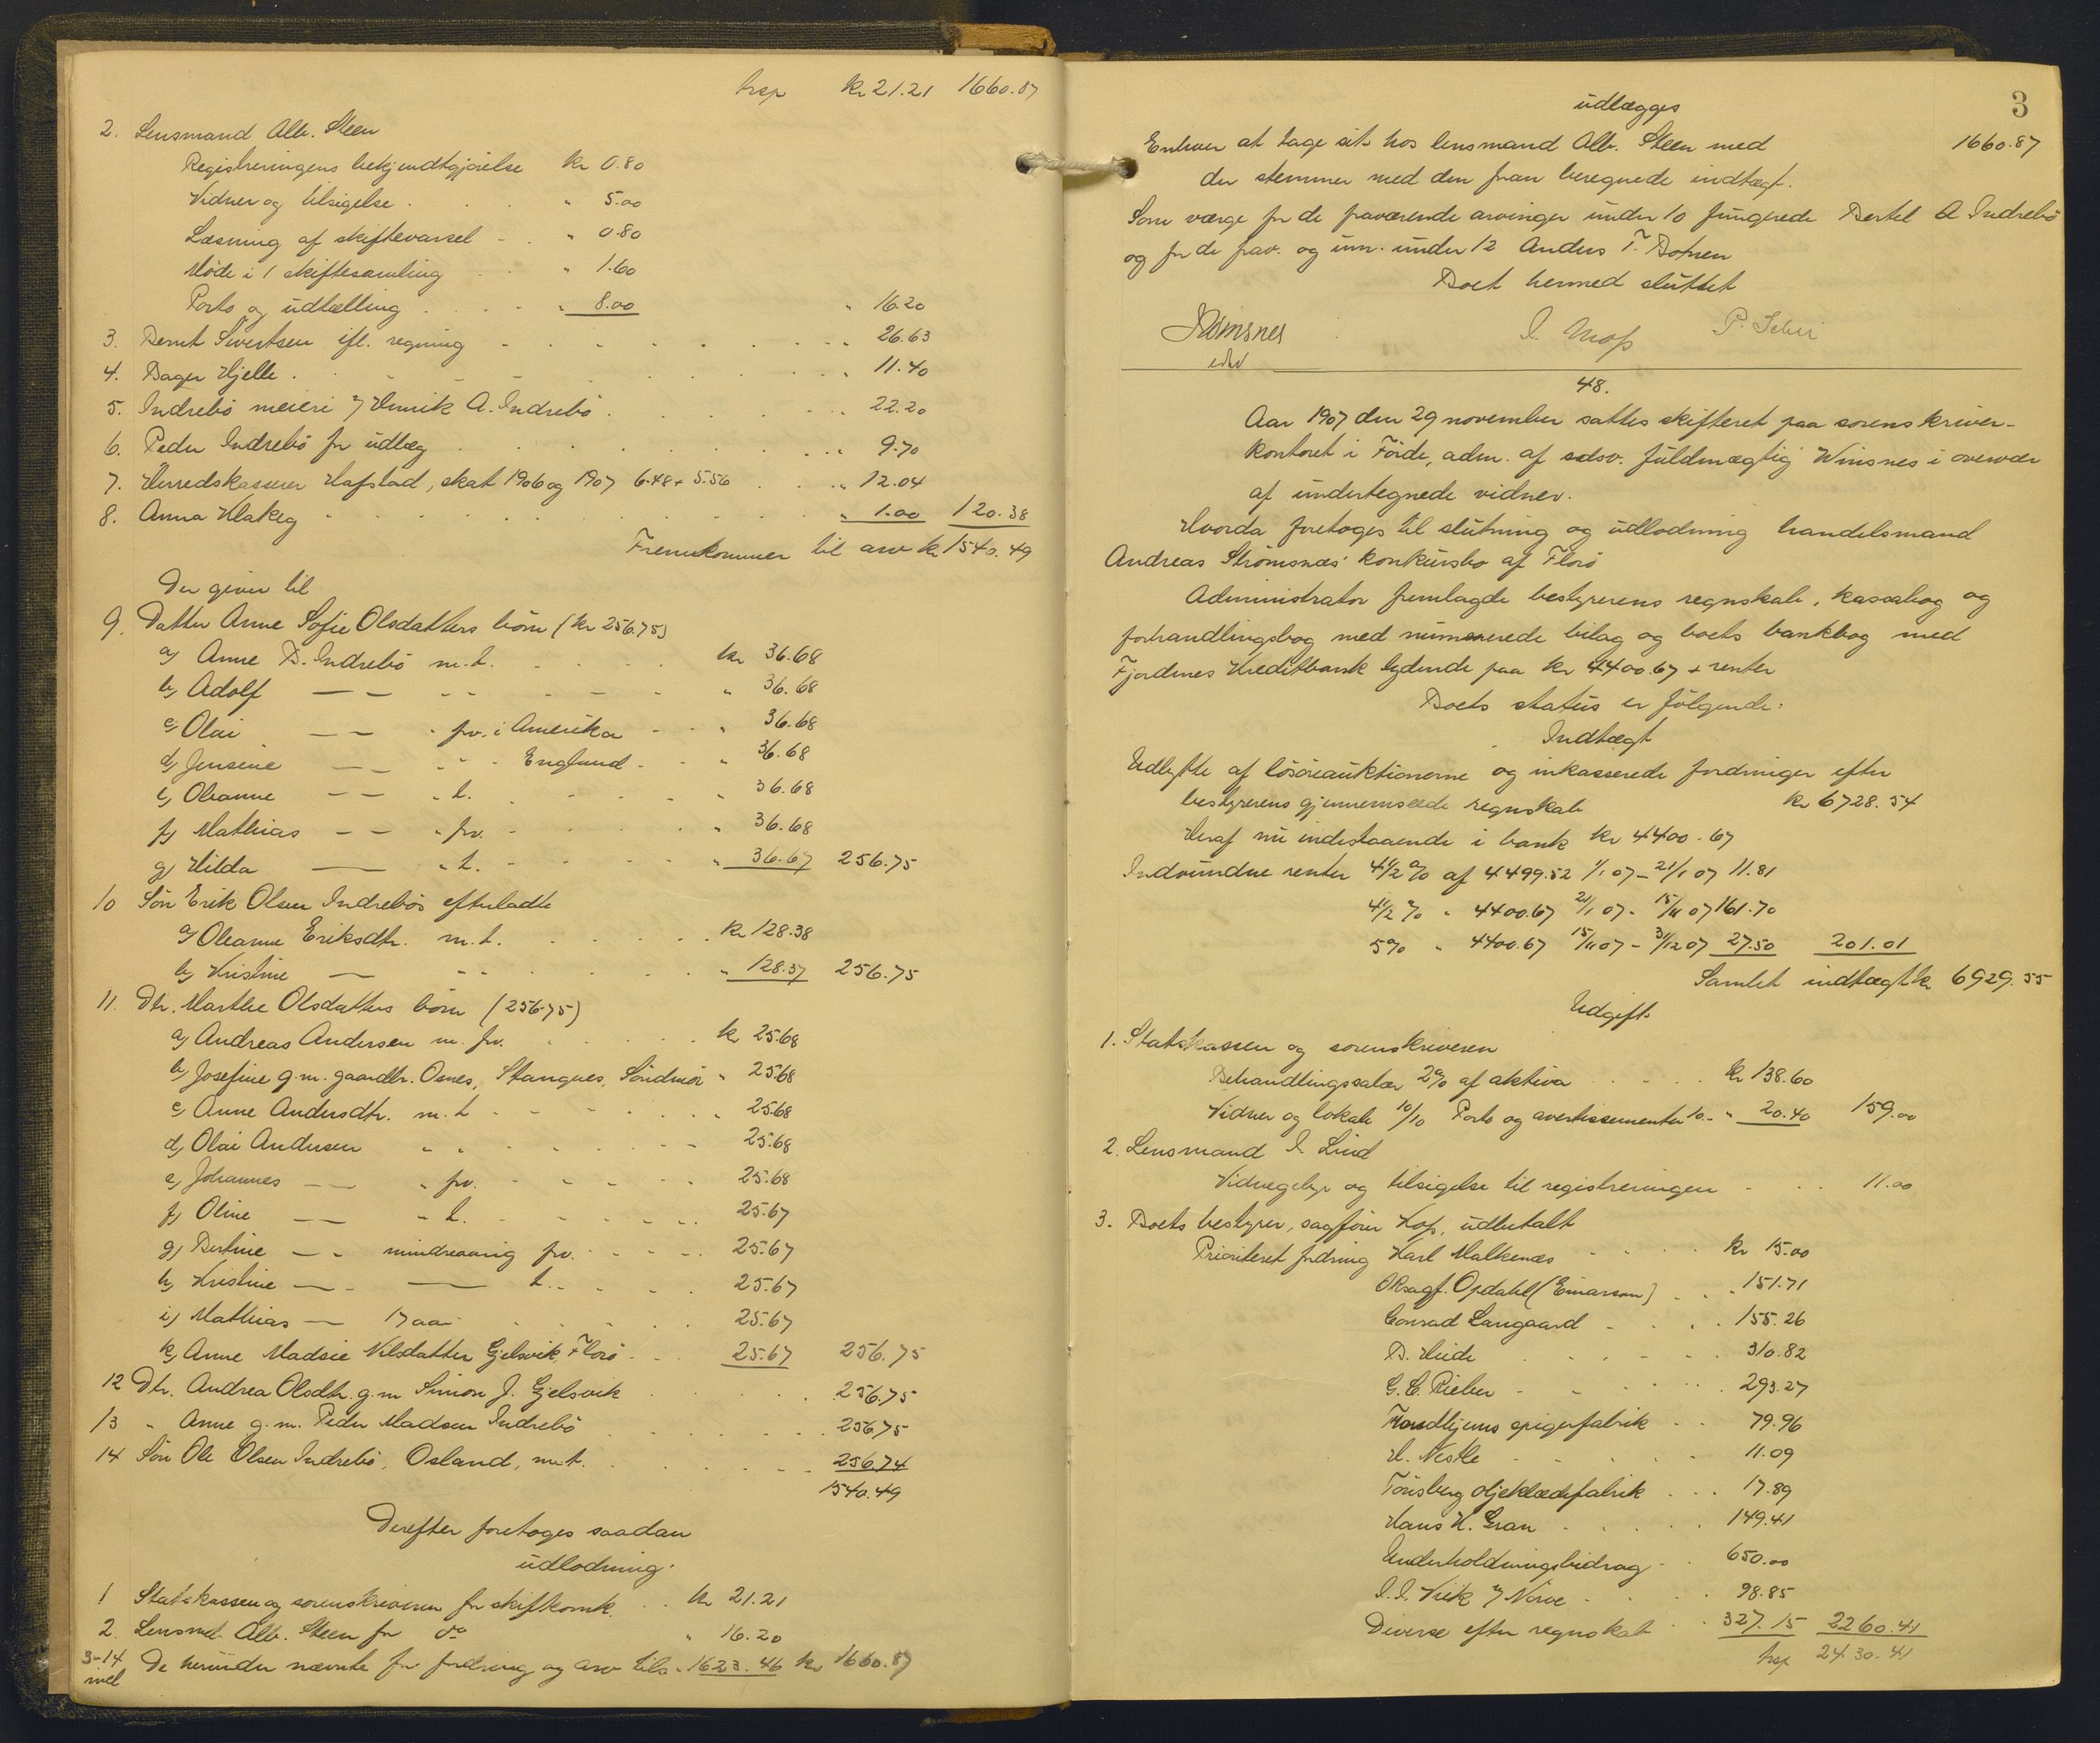 trsp kr 21.21 1660.87
2. Lensmand Alb. Steen
Registreringens bekjendtgjörelse kr 0.80
Vidner og tilsigelse . . . " 5.00
Læsning af skiftevarsel - . " 0.80
Möde i 1 skiftesamling . . " 1.60
Porto og udtælling . . . " 8.00 " 16.20
3. Bernt Sivertsen ifl. regning - - - - - " 26.63
4. Dager Hjelle . . . . " 11.40
5. Indrebö meieri v/ Henrik A. Indrebö . . . " 22.20
6. Peder Indrebö for udlæg . . . " 9.70
7. Herredskasserer Hafstad, skat 1906 og 1907 6.48 + 5.56 . . " 12.04
8. Anna Klakeg . . . . " 1.00 120.38
Fremkommer til arv kr 1540.49
Der giver til
9. Datter Anne Sofie Olsdatters börn (kr 256.75)
a) Anne B. Indrebö m. t. . . . kr 36.68
b) Adolf — — - - - - " 36.68
c) Olai — — " frv. i Amerika - - " 36.68
d) Jensine — — " - England - - " 36.68
e) Oleanne — — " t. . . . " 36.68
f) Mathias — — " frv. - . . " 36.68
g) Hilda — " t. - . . " 36.67 256.75
10 Sön Erik Olsen Indrebös efterladte
a) Oleanne Eriksdtr. m. t. . . . kr 128.38
b) Kristine — - - . . " 128.37 256.75
11. Dtr. Marthe Olsdatters börn (256.75)
a) Andreas Andersen m. frv. . . . kr 25.68
b) Josefine g. m. gaardbr. Osnes, Stangnes, Söndmör " 25.68
c) Anne Andersdtr. m. t - - - . " 25.68
d) Olai Andersen " " - - - 25.68
e) Johannes — — " frv. - - - 25.68
f) Oline — — " t. - - - . 25.67
g) Bertine — - mindreaarig frv. - - - 25.67
h) Kristine — - — t. - . . 25.67
i) Mathias — 17 aar . . . 25.67
k) Anne Madsie Nilsdatter Gjelsvik, Florö - . 25.67 256.75
12 Dtr. Andrea Olsdtr. g. m Simon J. Gjelsvik . . . 256.75
13 " Anne g. m. Peder Madsen Indrebö . . . 256.75
14 Sön Ole Olsen Indrebö, Osland, m. t. . . . 256.74
1540.49
Derefter foretoges saadan
udlodning:
1 Statskassen og sorenskriveren for skifteomk. . . kr 21.21
2. Lensmd. Alb. Steen for do " 16.20
3-14 incl De herunder nævnte for fordring og arv tils. " 1623.46 kr 1660.87
3
udlægges
Enhver at tage sit hos lensmand Alb. Steen med 1660.87
der stemmer med den foran beregnede indtægt.
Som værge for de fraværende arvinger under 10 fungerede Bertel A Indrebö
og for de frav. og um. under 12 Anders T. Botnen
Boet hermed sluttet
48.
Aar 1907 den 29 november sattes skifteret paa sorenskriver-
kontoret i Förde, adm. af edsv. fuldmægtig Winsnes i overvær
af undertegnede vidner.
Hvorda foretoges til slutning og udlodning handelsmand
Andreas Strömsnæs' konkursbo af Florö
Administrator fremlagde bestyrerens regnskab, kassabog og
forhandlingsbog med numererede bilag og boets bankbog med
Fjordenes Kreditbank lydende paa kr 4400.67 + renter
Boets status er fölgende:
Indtægt
Udbytte af lösöreauktionerne og inkasserede fordringer efter
bestyrerens gjennemseede regnskab kr 6728.54
Heraf nu indestaaende i bank kr 4400.67
Indvundne renter 4 1/2 % af 4499.52 1/1 07 - 21/1 07 11.81
4 1/2 % " 4400.67 21/1 07 - 15/11 07 161.70
5 % " 4400.67 15/11 07 - 31/12 07 27.50 201.01
Samlet indtægt kr 6929.55
Udgift
1. Statskassen og sorenskriveren
Behandlingssalær 2% af aktiva . . . kr 138.60
Vidner og lokale 10/10 Porto og avertissementer 10. - " 20.40 159.00
2. Lensmand I Lind
Vidnegebyr og tilsigelse til registreringen - . . 11.00
3. Boets bestyrer, sagförer Kop, udbetalt
Prioriteret fordring Karl Malkenæs - . . . kr 15.00
Oksagf. Opdahl (Einarson) . . " 151.71
Conrad Langaard - . . . 155.26
B. Heide . . - . - 310.82
G. C. Rieber - - . . . 293.27
Trondhjems spigerfabrik . . 79.96
H. Nestle - . . . - 11.09
Tönsberg oljeklædefabrik . . . 17.89
Hans H. Gran . . . . 149.41
Underholdningsbidrag - . 650.00
I. I. Krik v/ Nörve - . . 98.85
Diverse efter regnskab . . 327.15 2260.41
trsp 2430.41